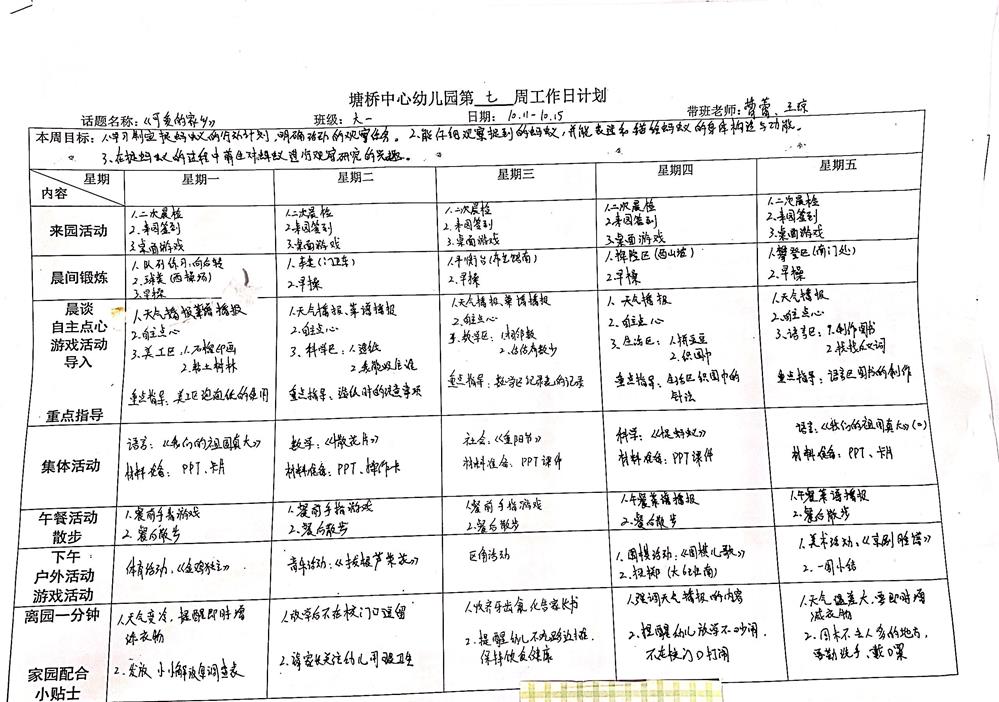 塘桥中心幼儿园第 七 周工作日计划
话题名称：《可爱的家乡》 班级：大一 日期：10.11-10.15 带班老师：
本周目标：1.学习制定捉蚂蚁的行动计划，明确活动的观察任务。2.能仔细观察捉到的蚂蚁，并能表达和描绘蚂蚁的身体构造与功能。
3.在捉蚂蚁的过程中萌生对蚂蚁进行观察研究的兴趣。
星期 星期一 星期二 星期三 星期四 星期五
内容
来园活动
1.二次晨检
2.来园签到
3.桌面游戏
1.二次晨检
2.来园签到
3.桌面游戏
1.二次晨检
2.来园签到
3.桌面游戏
1.二次晨检
2.来园签到
3.桌面游戏
1.二次晨检
2.来园签到
3.桌面游戏
晨间锻炼
1.队列练习：向右转
2.球类（西操场）
3.早操
1.车类（门卫东）
2.早操
1.平衡台
2.早操
1.探险区（西山坡）
2.早操
1.攀登区（南门处）
2.早操
晨谈
自主点心
游戏活动
导入
重点指导
1.天气播报、菜谱播报
2.自主点心
3.美工区：1.石榴印画
2.粘土树林
重点指导：美工区泡泡纸的使用
1.天气播报、菜谱播报
2.自主点心
3.科学区：1.造纸
重点指导：造纸时的注意事项
1.天气播报、菜谱播报
2.自主点心
3.数学区：1.相邻数
2.估估有多少
重点指导：数学区记录表的记录
1.天气播报
2.自主点心
3.生活区：1.拼豆豆
2.织围巾
重点指导：生活区织围巾的
针法
1.天气播报
2.自主点心
3.语言区：1.制作图书
重点指导：语言区图书的制作
集体活动
语言：《我们的祖国真大》
材料准备：PPT、卡片
数学：《撒花片》
材料准备：PPT、操作卡
社会：《重阳节》
材料准备：PPT课件
科学：《捉蚂蚁》
材料准备：PPT课件
语言：《我们的祖国真大》（二）
材料准备：PPT、卡片
午餐活动
散步
1.餐前手指游戏
2.餐后散步
1.餐前手指游戏
2.餐后散步
1.餐前手指游戏
2.餐后散步
1.午餐菜谱播报
2.餐后散步
1.午餐菜谱播报
2.餐后散步
下午
户外活动
游戏活动
体育活动：《金鸡独立》
音乐活动：《拔根芦柴花》
区角活动
1.围棋活动：《围棋儿歌》
1.美术活动：《京剧脸谱》
2.一周小结
离园一分钟
家园配合
小贴士
1.天气变冷，提醒即时增
添衣物
1.放学后不在校门口逗留
2.请家长关注幼儿用眼卫生
2.提醒幼儿不吃路边摊，
保持饮食健康
1.强调天气播报的内容
2.提醒幼儿放学不吵闹，
不在校门口打闹
1.天气温差大，要即时增
减衣物
2.周末不去人多的地方，
要勤洗手、戴口罩